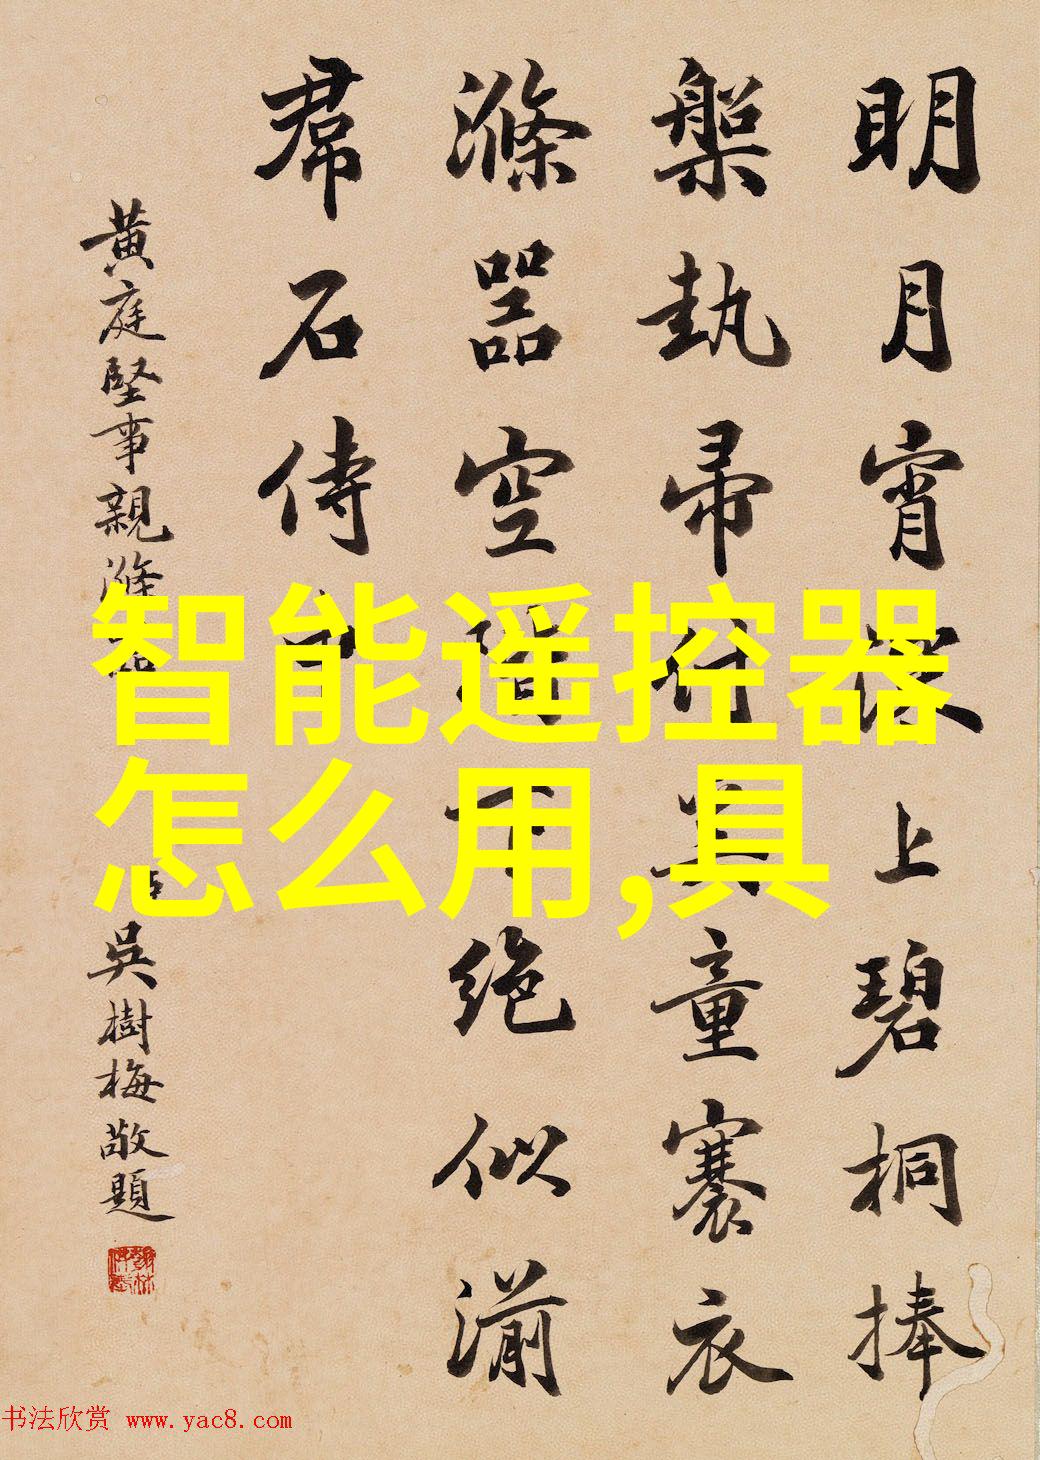 明月宵深上碧桐捧
槃執帚付美童褰衣
滌器空階下絕似湔
裙石傍
黃庭堅事親滌
吳樹梅敬題
智能遥控器
怎么用,具
书法欣赏 www.yac8.com